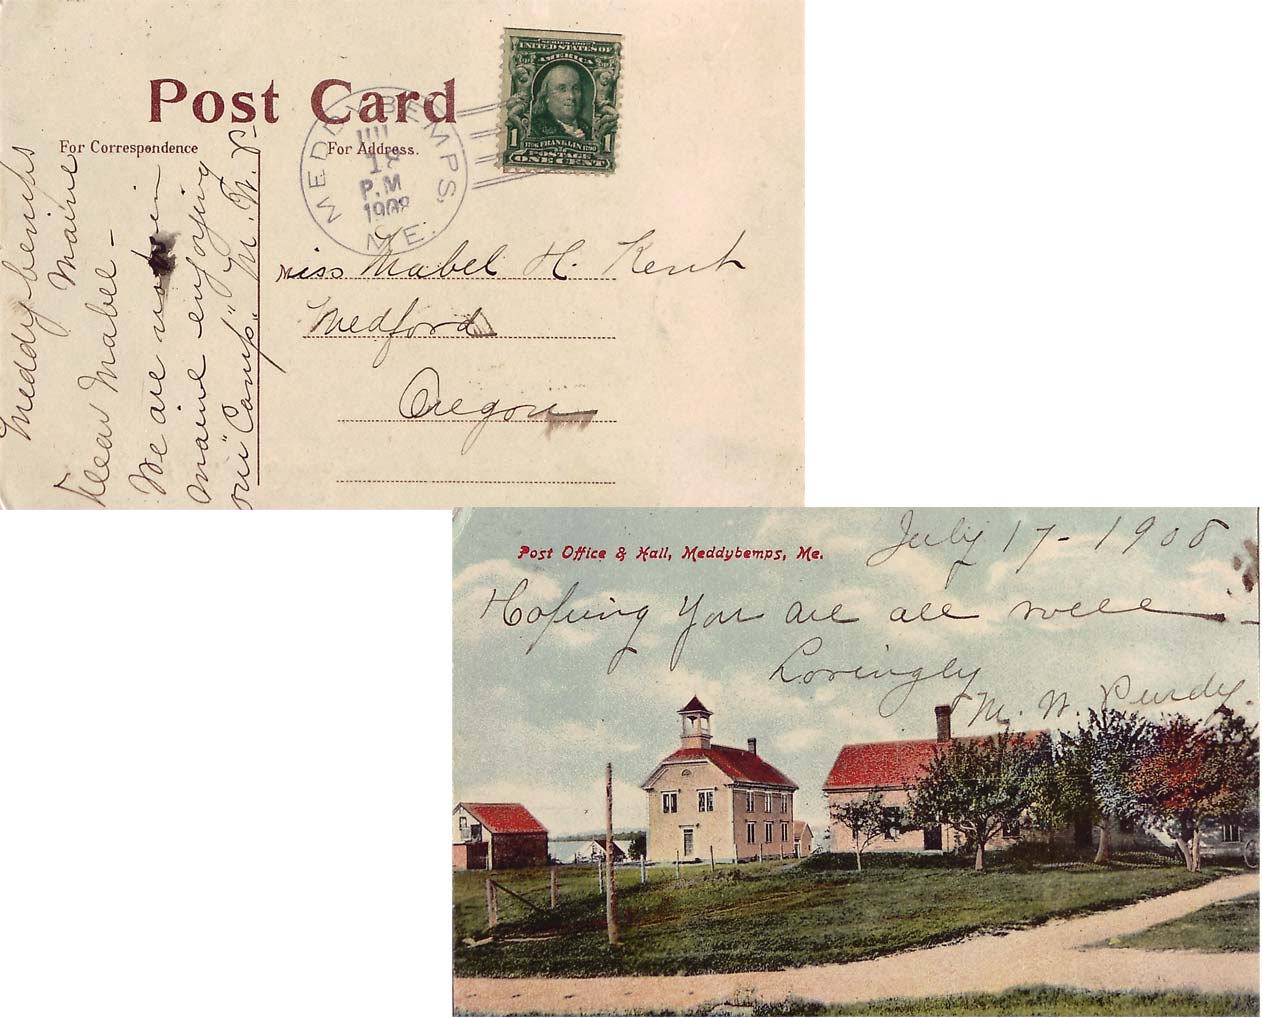 Post Card
For Correspondence
For Address.
MEDDYBEMPS, ME.
JUL
18
P.M
1908
SERIES 1902
UNITED STATES OF
AMERICA
1 1706 FRANKLIN 1790 1
POSTAGE
ONE CENT
Meddybemps
Maine
Dear Mabel -
We are now in
Maine enjoying
our "Camp" M. W. P-
Miss Mabel H. Kent
Medford
Oregon
Post Office & Hall, Meddybemps, Me.
July 17 - 1908
Hoping you are all well -
Lovingly
M. W. Purdy